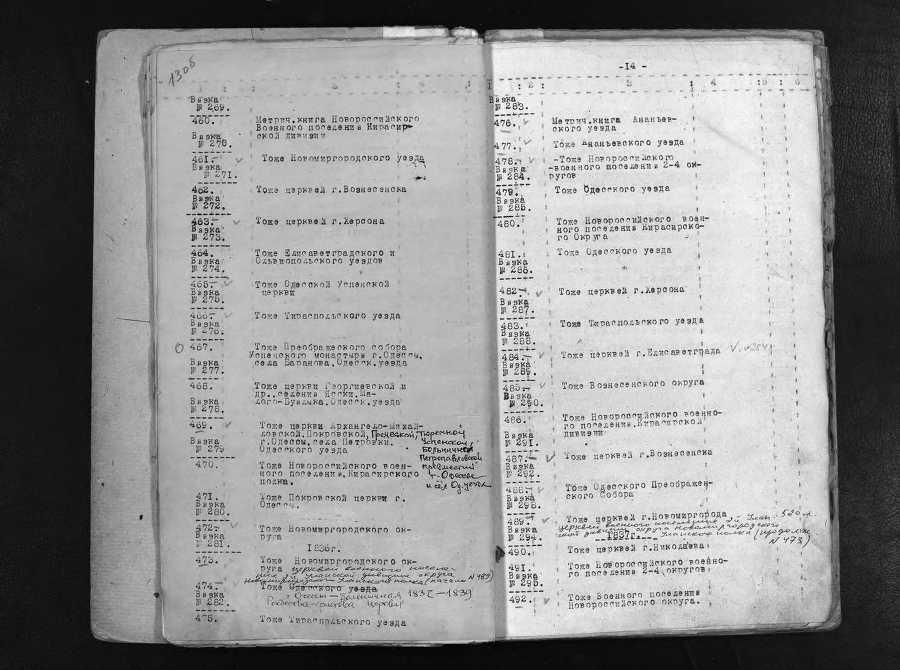 1306
Вязка
№ 269.
460.
Метрич.книга Новороссийского
Военного поселения Кирасир-
ской дивизии
Вязка
№ 270.
461.
Тоже Новомиргородского уезда
Вязка
№ 271.
462.
Тоже церквей г.Вознесенска
Вязка
№ 272.
463.
Тоже церквей г.Херсона
Вязка
№ 273.
464.
Тоже Елисаветградского и
Ольвиопольского уездов
Вязка
№ 274.
465.
Тоже Одесской Успенской
церкви
Вязка
№ 275.
466.
Тоже Тираспольского уезда
Вязка
№ 276.
467.
Тоже Преображеского собора
Успенского монастыря г.Одессы,
села Баранова,Одесск.уезда
Вязка
№ 277.
468.
Тоже церкви Георгиевской и
др.,селения Ески, Ма-
лого-Буялыка,Одесск.уезда
Вязка
№ 278.
469.
Тоже церкви Архангело-Михай-
ловской,Покровской,Троицкой, Тюремной
г.Одессы,села Петровки, Успенской,
Одесского уезда Больничной
Вязка
№ 279
Петропавловской
предместий
г. Одессы
и сёл Од.уезда
470.
Тоже Новороссийского воен-
ного поселения,Кирасирского
полка.
471.
Тоже Покровской церкви г.
Одессы.
Вязка
№ 280.
472.
Тоже Новомиргородского ок-
руга
Вязка
№ 281.
1836г.
473.
Тоже Новомиргородского ок-
руга церквей военного поселе-
ния 3й Уланской дивизии округа
Новомиргородского Уланского полка (начало N 489)
474.
Тоже Одесского уезда
г. Одессы - Больничная 1832-1839
Рождество-
церкви
Вязка
№ 282.
475.
Тоже Тираспольского уезда
-14 -
Вязка
№ 283.
476.
Метрич.книга Ананьев-
ского уезда
477.
Тоже Ананьевского уезда
478.
-Тоже Новороссийского
-военного поселения 2-4 ок-
ругов
Вязка
№ 284.
479.
Тоже Одесского уезда
Вязка
№ 285.
480.
Тоже Новороссийского воен-
ного поселения Кирасирско-
го Округа
481.
Тоже Одесского уезда
Вязка
№ 286.
482.
Тоже церквей г.Херсона
Вязка
№ 287.
483.
Тоже Тираспольского уезда
Вязка
№ 288.
484.
Тоже церквей г.Елисаветграда
Вязка
№ 289.
485.
Тоже Вознесенского округа
Вязка
№ 290.
486.
Тоже Новороссийского военно-
го поселения,Кирасирской
дивизии
Вязка
№ 291.
487.
Тоже церквей г.Вознесенска
Вязка
№ 292.
488.
Тоже Одесского Преображен-
ского Собора
Вязка
№ 293.
489.
Тоже церквей г.Новомиргорода
церквей военного поселения 3й Улан-
ской дивизии округа Новомиргородского
Уланского полка (продолж.
N 473)
Вязка
№ 294.
1837г.
490.
Тоже церквей г.Николаева
491.
Тоже Новороссийского военно-
го поселения 2-4 округов
Вязка
№ 295.
492.
Тоже Военного поселения
Новороссийского округа.